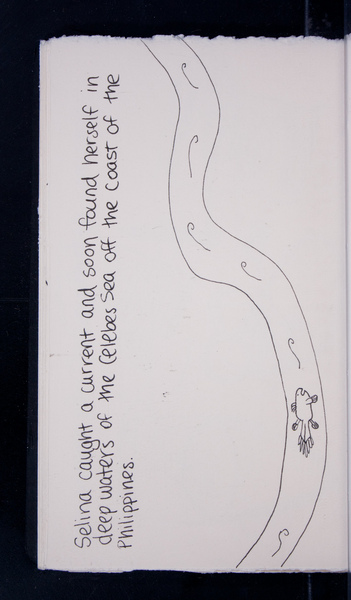 Selina caught a current and soon found herself in
deep waters of the Celebes Sea off the coast of the
Philippines.